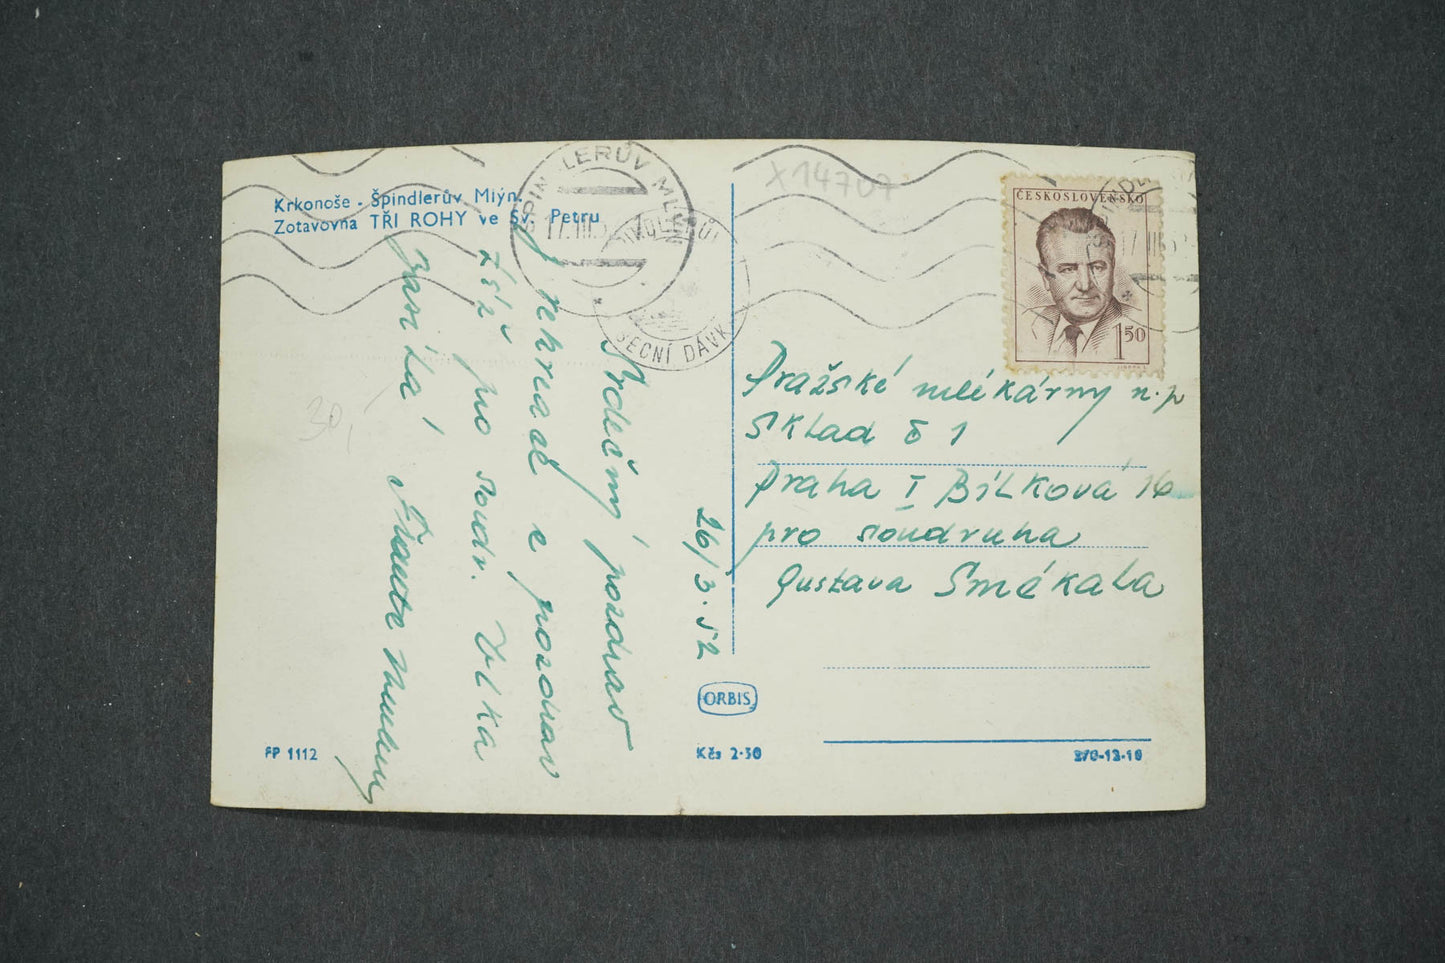 Krkonoše - Špindlerův Mlýn.
Zotavovna TŘI ROHY ve Sv. Petru
ŠPINDLERŮV MLÝN
17.III.5
OBECNÍ DÁVK
X14707
ČESKOSLOVENSKO
1 50
30,-
26/3.52
Srdečný pozdrav
pozdrav
též pro soudr. Vlka
Pražské mlékárny n.p
Sklad č 1
Praha I Bílková 16
pro soudruha
Gustava Smékala
ORBIS
FP 1112
Kčs 2·50
270-12-10